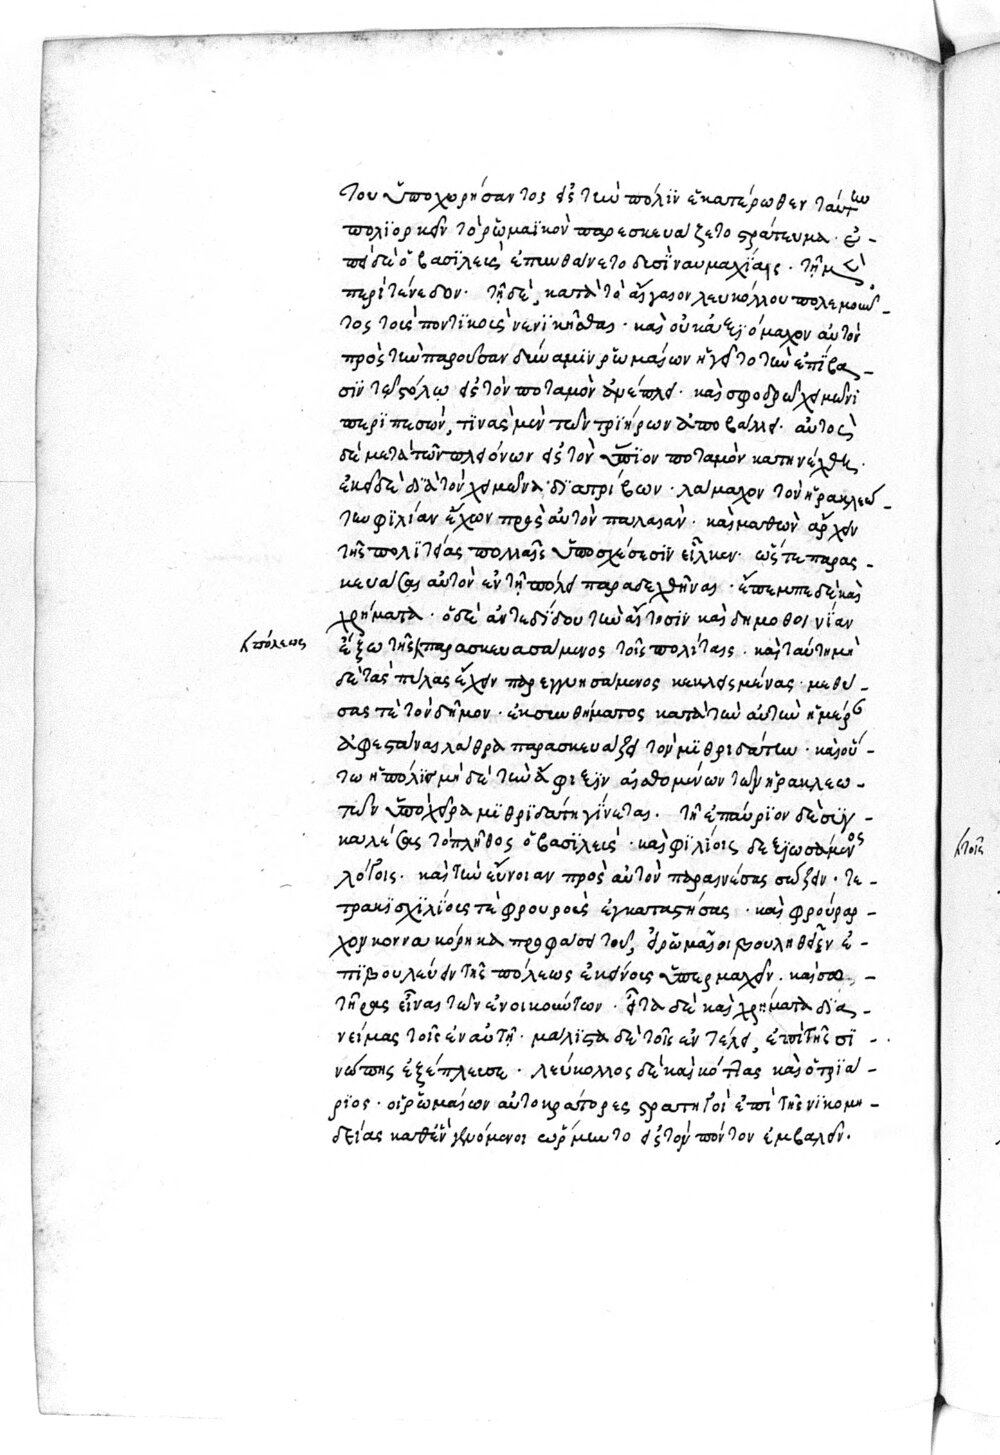 του ὑποχωρήσαντος εἰς τὴν πόλιν ἑκατέρωθεν ταύτην
πολιορκεῖν τὸ ῥωμαϊκὸν παρεσκευάζετο στράτευμα. ἐ-
πεὶ δὲ ὁ βασιλεὺς ἐπυνθάνετο δυσὶ ναυμαχίαις. τῇ μὲν
περὶ τένεδον. τῇ δὲ, κατὰ τὸ αἰγαῖον λευκόλλου πολεμοῦν
τος τοὺς ποντικοὺς νενικῆσθαι. καὶ οὐκ ἀξιόμαχον αὐτὸν
πρὸς τὴν παροῦσαν δύναμιν ῥωμαίων ἡγεῖτο τὴν ἐπίβα-
σιν τῷ στόλῳ εἰς τὸν ποταμὸν ἀνέπλει. καὶ σφοδρῷ χειμῶνι
περιπεσὼν, τινὰς μὲν τῶν τριήρων ἀποβάλλει. αὐτὸς
δὲ μετὰ τῶν πλειόνων εἰς τὸν ὕπιον ποταμὸν κατηνέχθη.
ἐκεῖ δὲ διὰ τὸν χειμῶνα διατρίβων. λάμαχον τὸν ἡρακλεώ-
την φιλίαν ἔχων πρὸς αὐτὸν παλαιὰν. καὶ μαθὼν ἄρχειν
τῆς πολιτείας πολλαῖς ὑποσχέσεσιν εἷλκεν. ὥστε παρας-
κευάσαι αὐτὸν ἐν τῇ πόλει παραδεχθῆναι. ἔπεμπε δὲ καὶ
χρήματα. ὁ δὲ ἀντεδίδου τὴν αἴτησιν καὶ δημοθοινίαν
ἔξω τῆς παρασκευασάμενος τοῖς πολίταις. καὶ ταύτῃ μη
πόλεως
δὲ τὰς πύλας ἔχειν παρεγγυησάμενος κεκλεισμένας. μεθύ-
σας τε τὸν δῆμον. ἐκ συνθήματος κατὰ τὴν αὐτὴν ἡμέραν
ἀφεστάναι λάθρα παρασκευάζει τὸν μιθριδάτην. καὶ οὕ-
τω ἡ πόλις μηδὲ τὴν ἄφιξιν αἰσθομένων τῶν ἡρακλεω-
τῶν ὑποχείρα μιθριδάτῃ γίνεται. τῇ ἐπαύριον δὲ συγ-
καλέσας τὸ πλῆθος ὁ βασιλεὺς. καὶ φιλίοις δεξιωσάμενος
λόγοις. καὶ τὴν εὔνοιαν πρὸς αὐτὸν παραινέσας σώζειν. τε-
τρακισχιλίους τε φρουροὺς ἐγκαταστήσας. καὶ φρούραρ-
χον κοννακόρηκα προφάσει τοῦ, εἰ ῥωμαῖοι βουληθεῖεν ἐ-
πιβουλεύειν τῆς πόλεως ἐκείνοις ὑπερμαχεῖν. καὶ σω-
τῆρας εἶναι τῶν ἐνοικούντων. εἶτα δὲ καὶ χρήματα δια-
νείμας τοῖς ἐν αὐτῇ. μάλιστα δὲ τοῖς ἐν τέλει, ἐπὶ τῆς σι-
νώπης ἐξέπλευσε. λεύκολλος δὲ καὶ κόττας καὶ ὁ τριά-
ριος. οἱ ῥωμαίων αὐτοκράτορες στρατηγοὶ ἐπὶ τῆς νικομη-
δείας καθὲν γενόμενοι ὥρμηντο εἰς τὸν πόντον ἐμβαλεῖν.
τοῖς